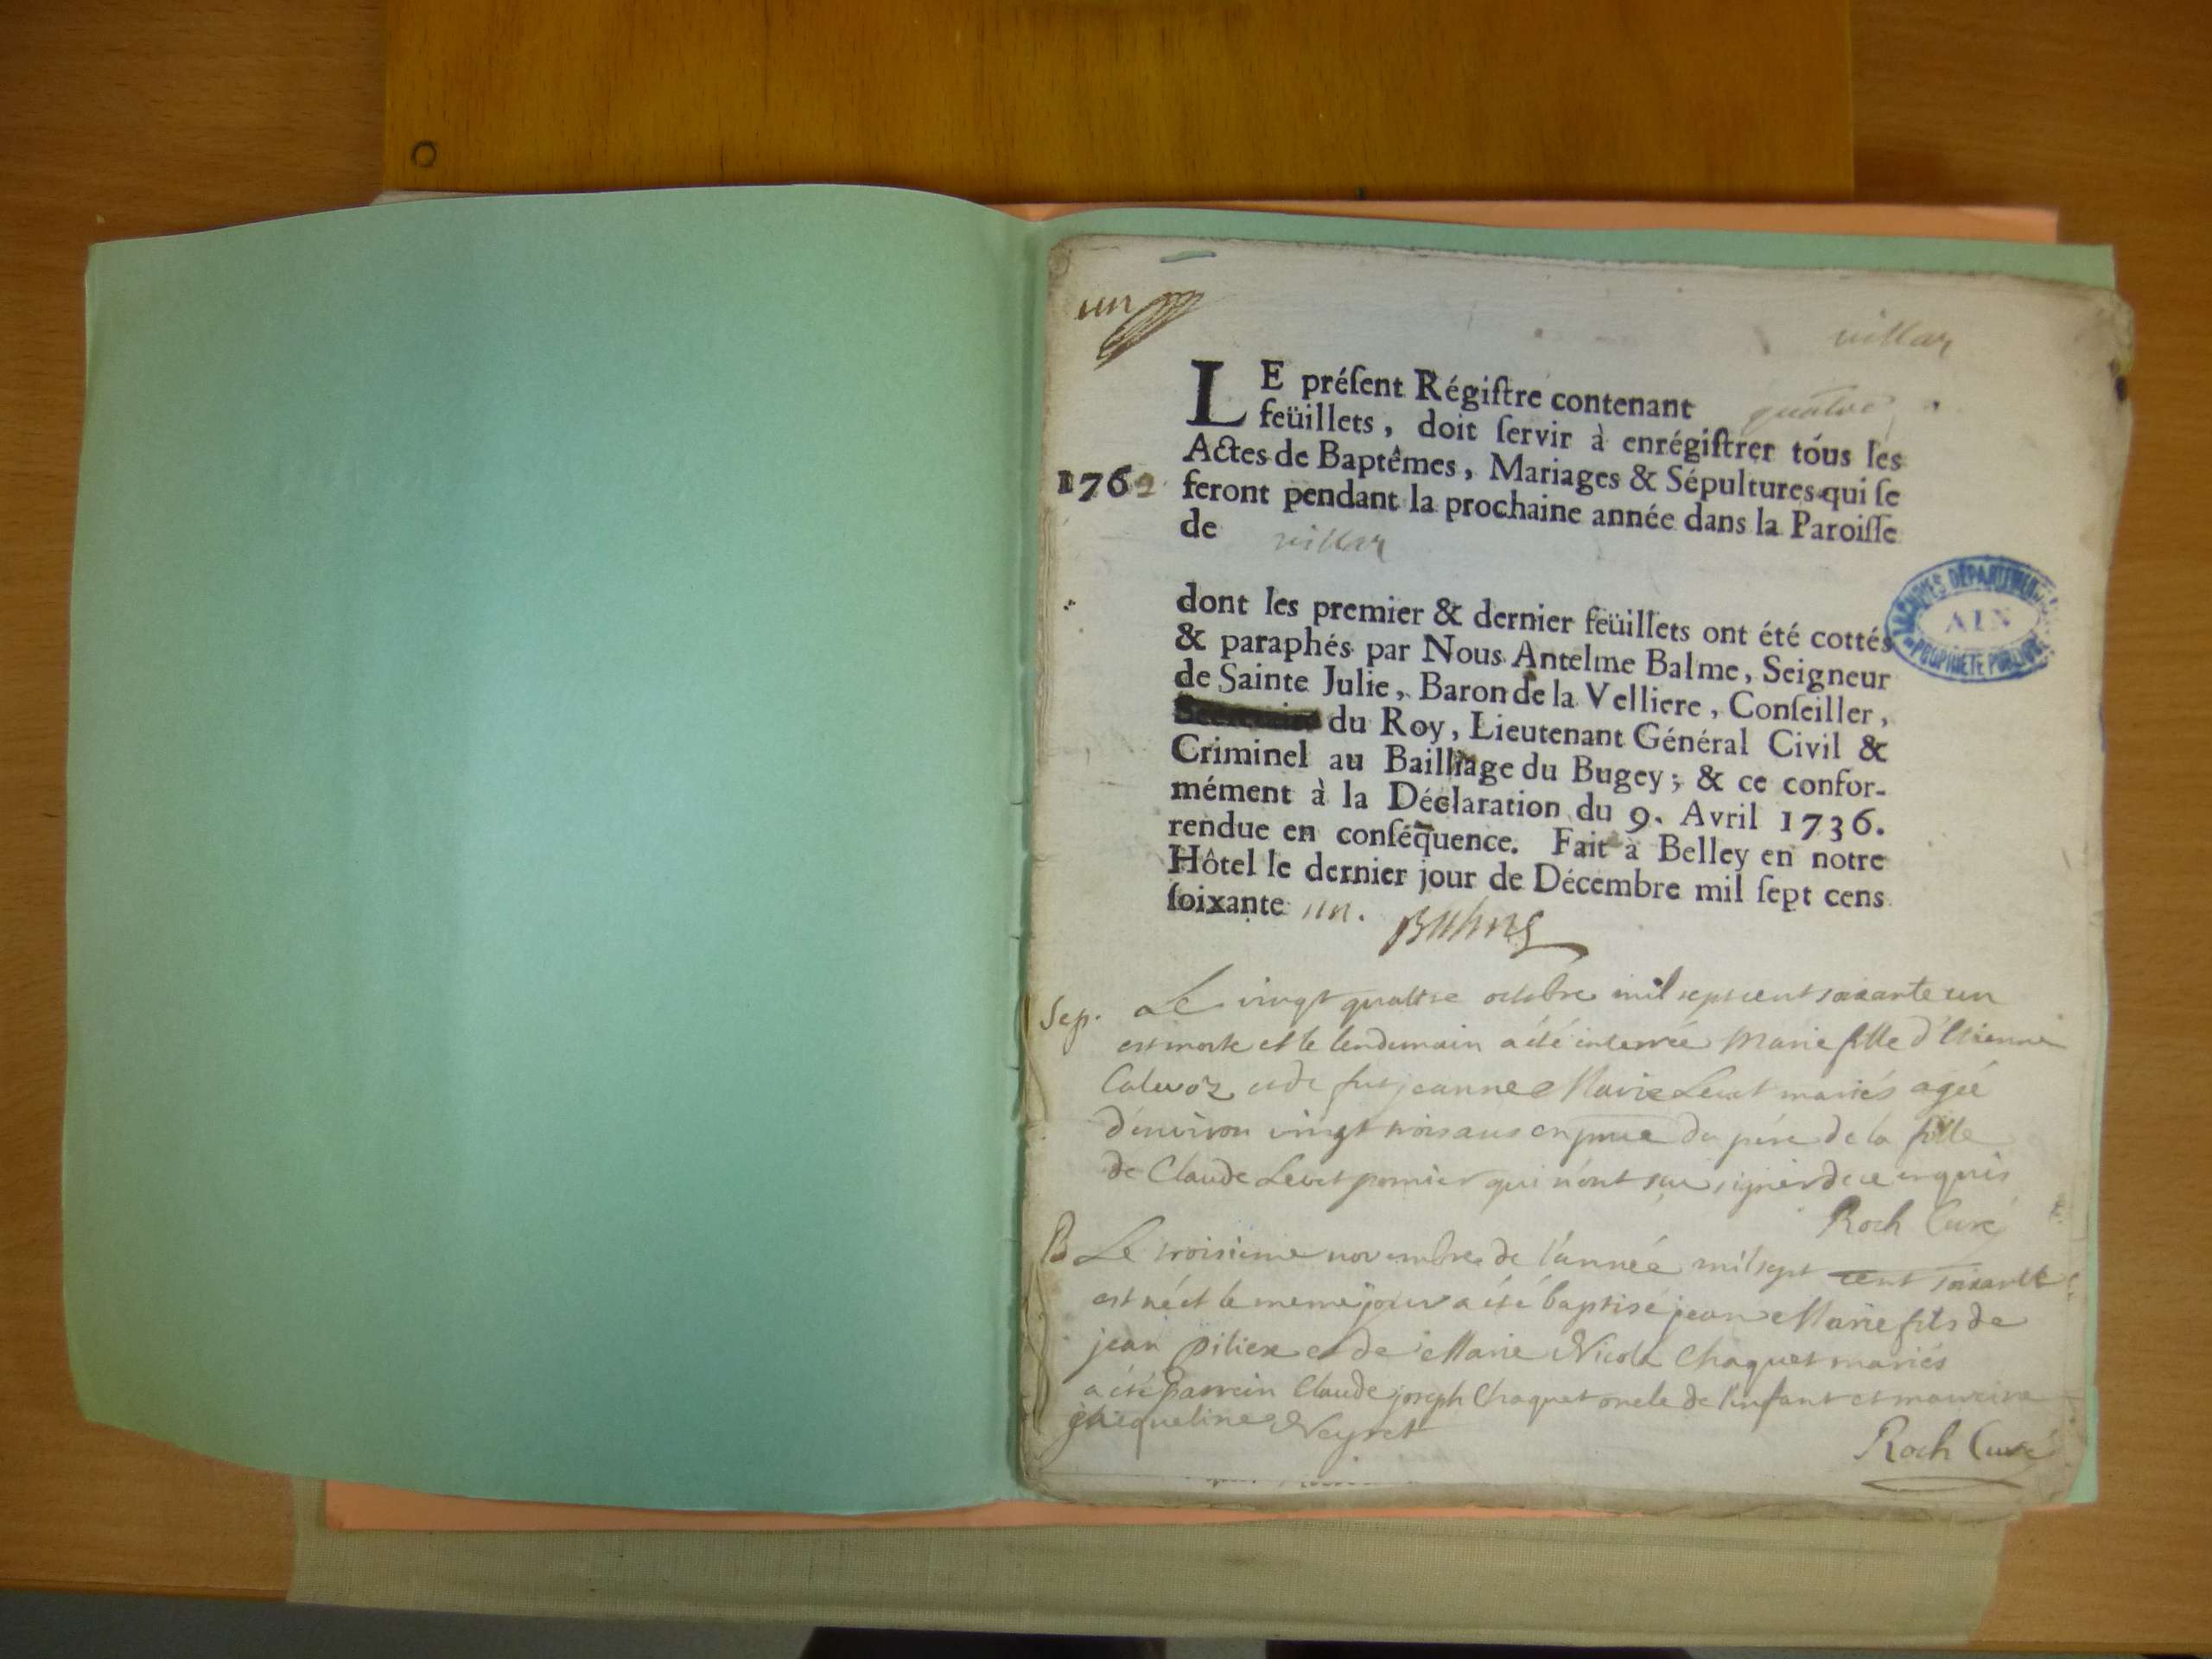 un
villar
LE préſent Régiſtre contenant quatre
feüillets, doit ſervir à enrégiſtrer tous les
Actes de Baptêmes, Mariages & Sépultures qui ſe
1762 feront pendant la prochaine année dans la Paroiſſe
de villar
dont les premier & dernier feüillets ont été cottés
& paraphés par Nous Antelme Balme, Seigneur
de Sainte Julie, Baron de la Velliere, Conſeiller,
du Roy, Lieutenant Général Civil &
Criminel au Bailliage du Bugey; & ce confor-
mément à la Déclaration du 9. Avril 1736.
rendue en conſéquence. Fait à Belley en notre
Hôtel le dernier jour de Décembre mil ſept cens
ſoixante un. Balme
ARCHIVES DÉPARTEMENTALES
AIN
PROPRIÉTÉ PUBLIQUE
Sep. Le vingt quatre octobre mil sept cent soixante un
est morte et le lendemain a été enterrée Marie fille d'Etienne
et de fut jeanne Marie Levet mariés agée
d'environ vingt trois ans en du père de la fille
de Claude Levet qui n'ont sçu signer de ce enquis
Roch Curé
B Le troisieme novembre de l'année mil sept cent soixante
est né et le meme jour a été baptisé jean Marie fils de
jean et de Marie Nicole Chaquet mariés
a été parrein Claude joseph Chaquet oncle de l'enfant et marreine
jacqueline Neyret
Roch Curé